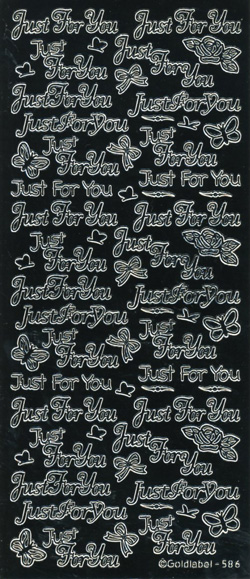 Just For You
Just For You
Just For You
Just For You
Just For You
Just For You
Just For You
Just For You
Just For You
Just For You
Just For You
Just For You
Just For You
Just For You
Just For You
Just For You
Just For You
Just For You
Just For You
Just For You
Just For You
Just For You
Just For You
Just For You
Just For You
Just For You
Just For You
©Goldlabel-586